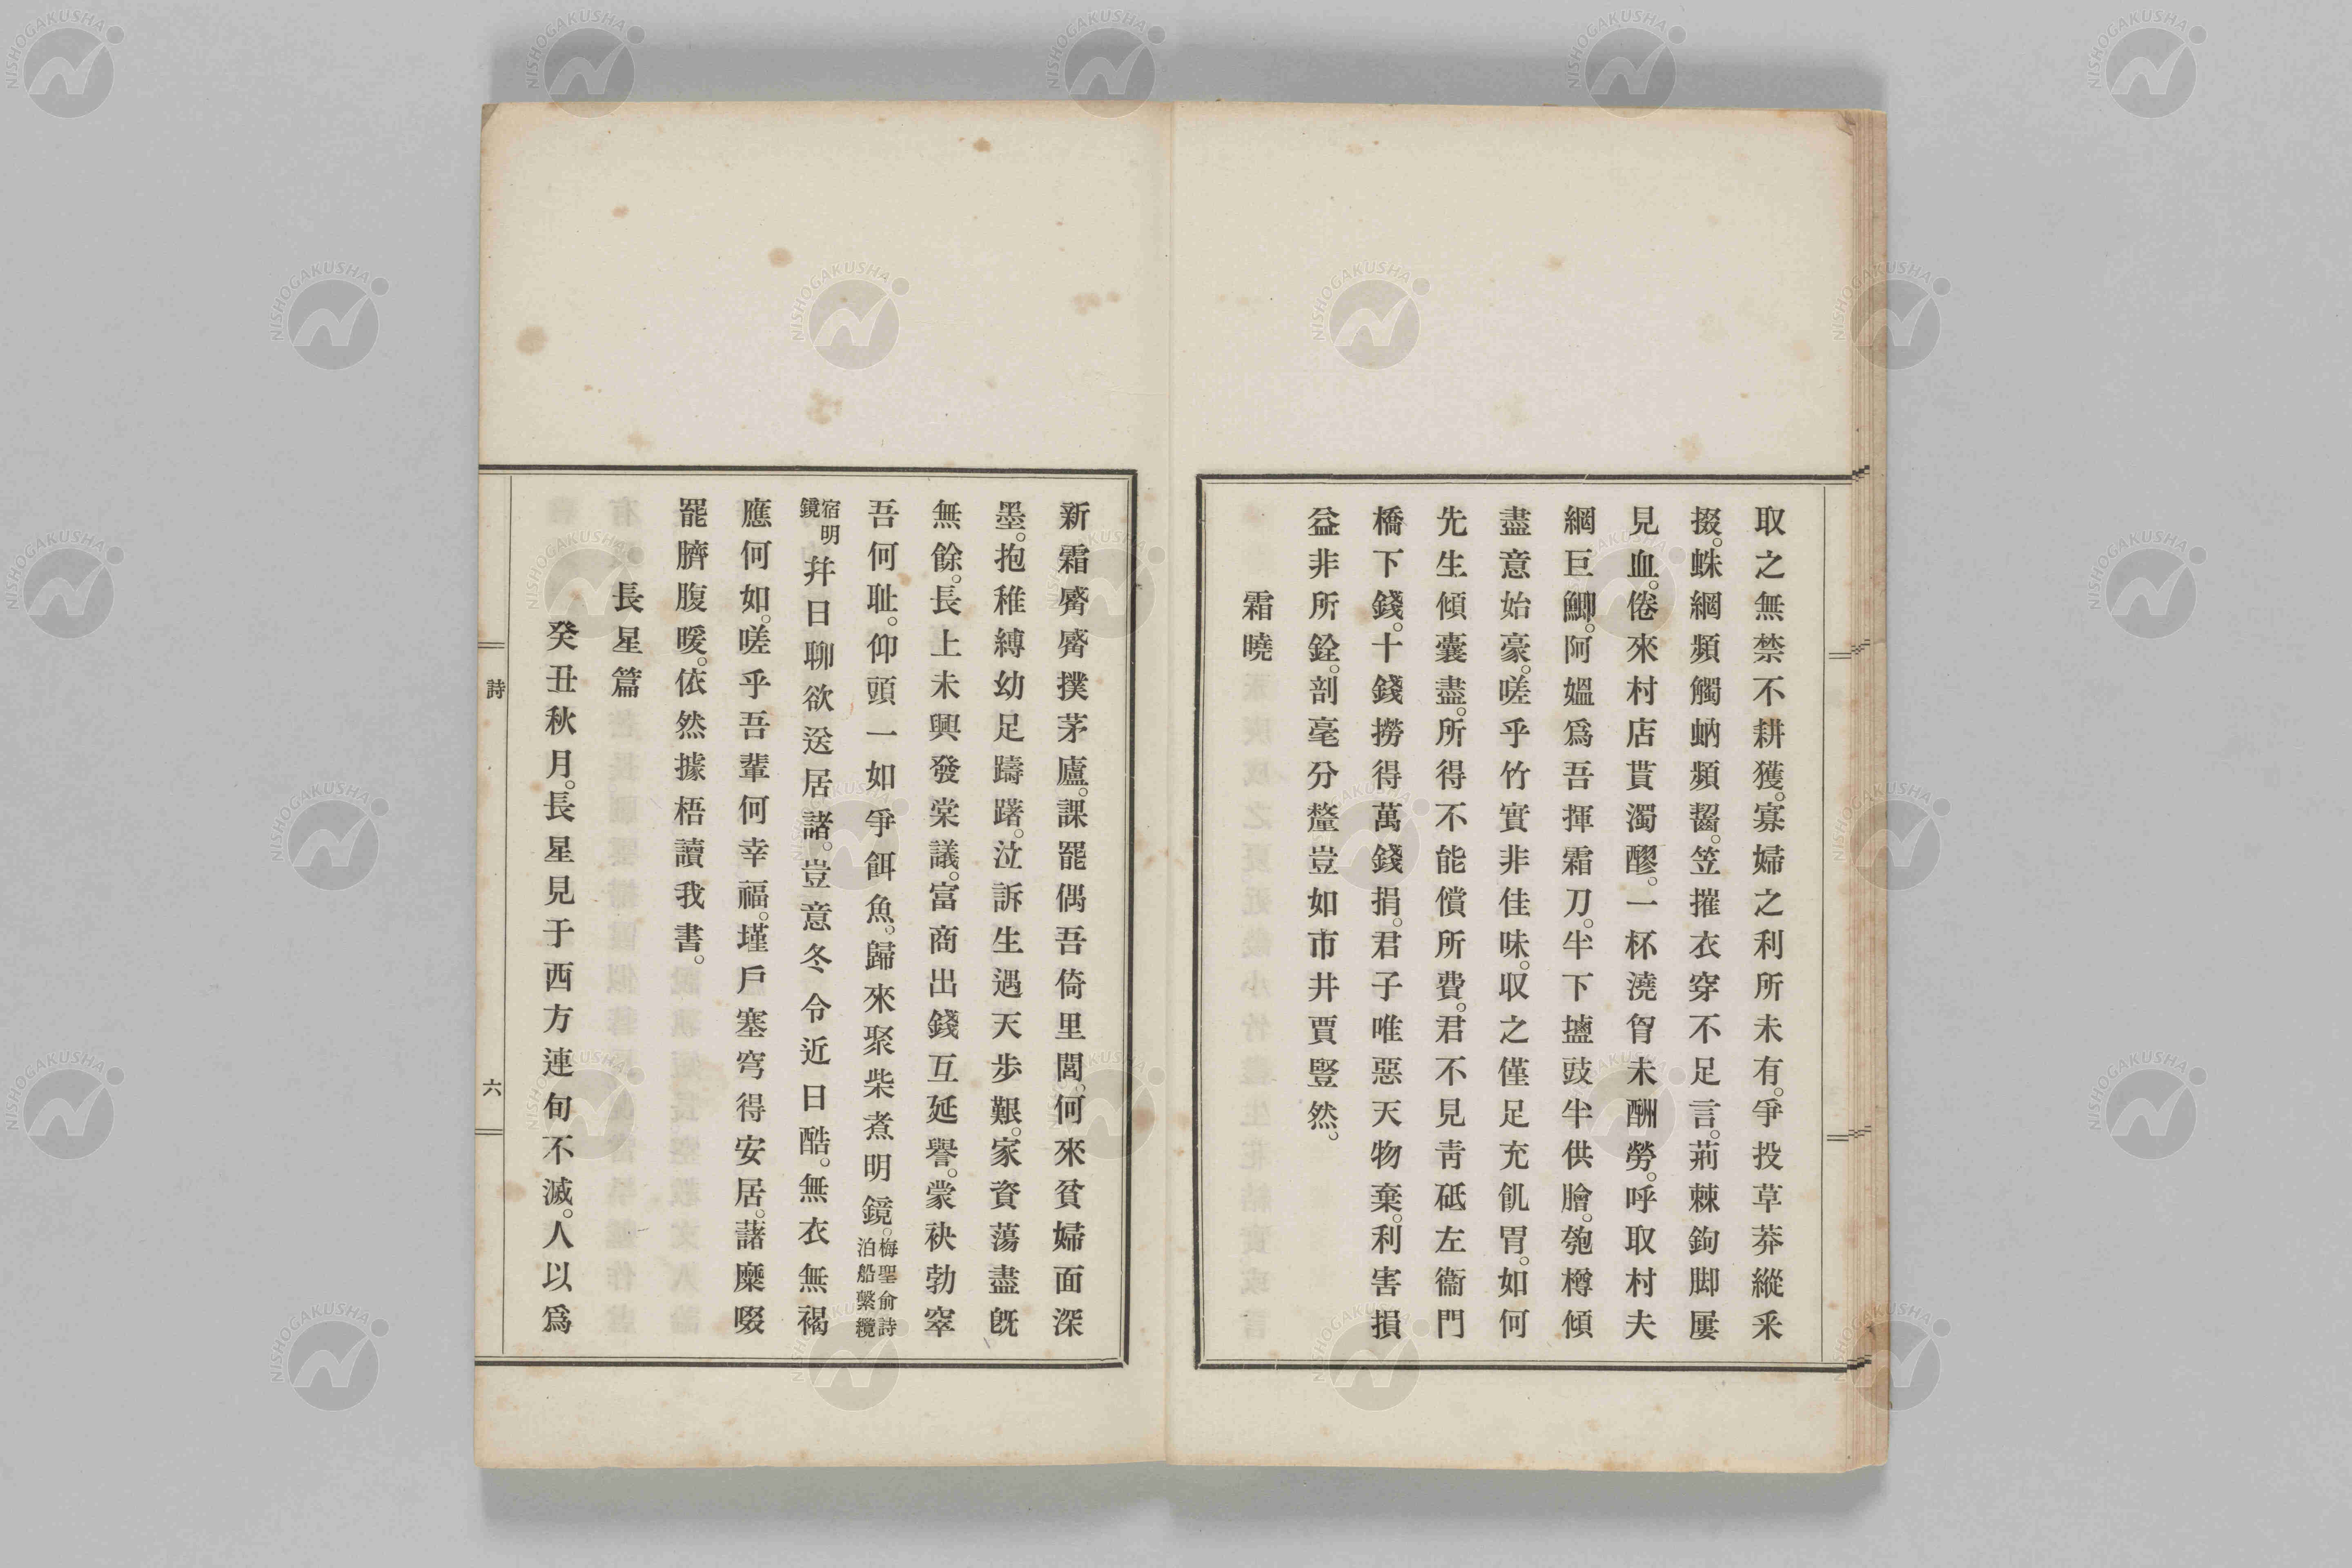 取之無禁不耕獲。寡婦之利所未有。爭投草莽縱采
掇。蛛網頻觸蚋頻齧。笠摧衣穿不足言。荊棘鉤脚屢
見血。倦來村店貰濁醪。一杯澆胷未酬勞。呼取村夫
網巨鯽。阿媼爲吾揮霜刀。半下鹽豉半供膾。匏樽傾
盡意始豪。嗟乎竹實非佳味。収之僅足充飢胃。如何
先生傾囊盡。所得不能償所費。君不見靑砥左衞門
橋下錢。十錢撈得萬錢捐。君子唯惡天物棄。利害損
益非所銓。剖毫分釐豈如市井賈豎然。
霜曉
新霜霽霽撲茅廬。課罷偶吾倚里閭。何來貧婦面深
墨。抱稚縛幼足躊躇。泣訴生遇天步艱。家資蕩盡旣
無餘。長上未興發棠議。富商出錢互延譽。蒙袂勃窣
吾何耻。仰頭一如爭餌魚。歸來聚柴煮明鏡。梅聖俞詩泊船繫纜
宿明鏡幷日聊欲送居諸。豈意冬令近日酷。無衣無褐
應何如。嗟乎吾輩何幸福。墐戶塞穹得安居。藷糜啜
罷臍腹暖。依然據梧讀我書。
長星篇
癸丑秋月。長星見于西方連旬不滅。人以爲
詩
六
NISHOGAKUSHA